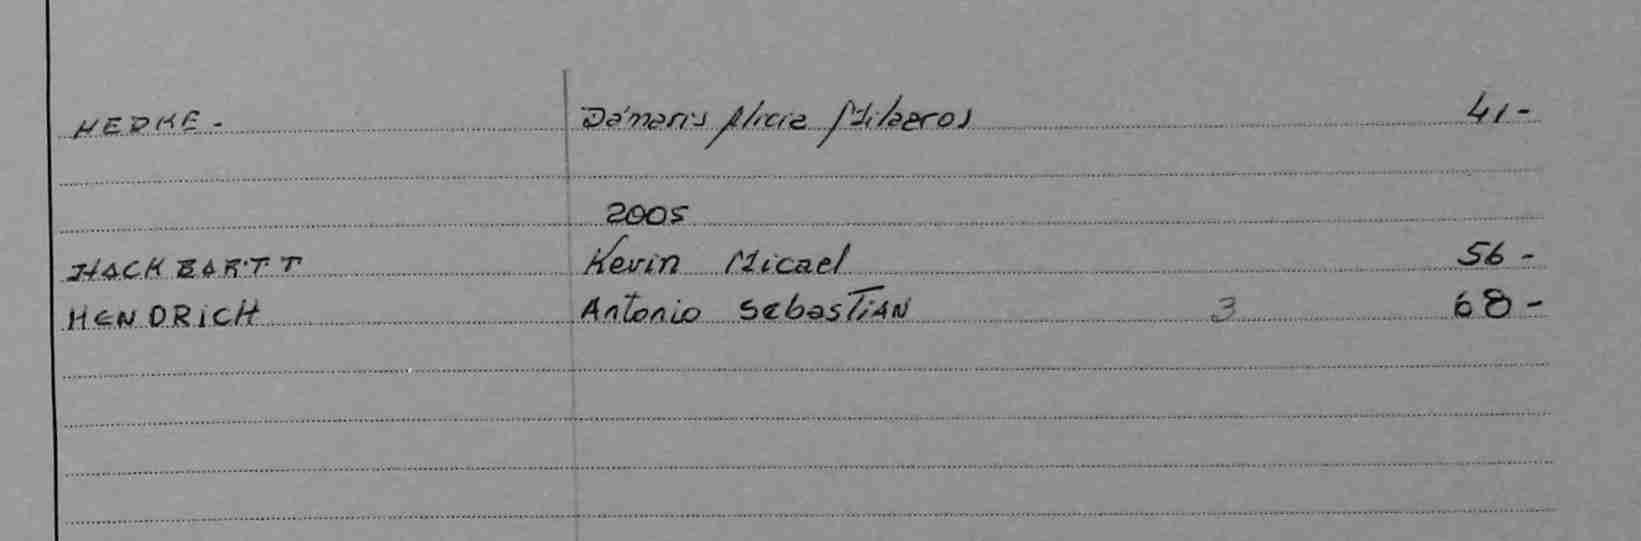 HEDKE - Dámaris Alicia Milagros 41-
2005
HACKBARTT Kevin Micael 56-
HENDRICH Antonio Sebastian 3 68-